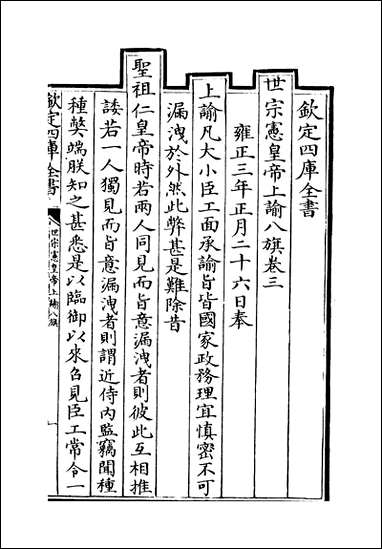 欽定四庫全書
世宗憲皇帝上諭八旗卷三
雍正三年正月二十六日奉
上諭凡大小臣工面承諭旨皆國家政務理宜慎密不可
漏洩於外然此弊甚是難除昔
聖祖仁皇帝時若兩人同見而旨意漏洩者則彼此互相推
諉若一人獨見而旨意漏洩者則謂近侍內監竊聞種
種弊端朕知之甚悉是以臨御以來召見臣工常令一
欽定四庫全書
世宗憲皇帝上諭八旗
一